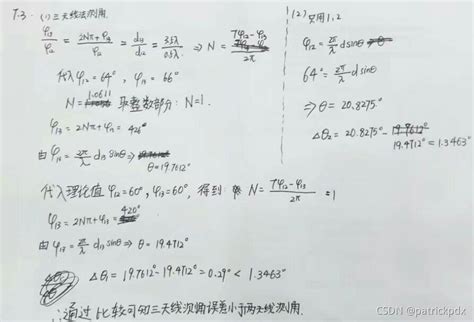 7-3. (1) 三天线法测角
φ₁₃/φ₁₂ = (2Nπ+φ₁₃)/φ₁₂ = d₁₃/d₁₂ = 3.5λ/0.5λ ⇒ N = (7φ₁₂-φ₁₃)/2π
代入 φ₁₂=64°, φ₁₃=66°
N = 1.0611 取整数部分: N=1.
φ₁₃ = 2Nπ+φ₁₃ = 426°
由 φ₁₃ = 2π/λ d₁₃ sinθ ⇒ θ=19.7612°
代入理论值 φ₁₂=60°, φ₁₃=60°, 得到 N = (7φ₁₂-φ₁₃)/2π = 1
φ₁₃ = 2Nπ+φ₁₃ = 420°
由 φ₁₃ = 2π/λ d₁₃ sinθ ⇒ θ = 19.4712°
Δθ₁ = 19.7612° - 19.4712° = 0.29° < 1.3463°
∴ 通过比较可知三天线测角误差小于两天线测角.
(2) 只用1,2
φ₁₂ = 2π/λ d sinθ
64° = 2π/λ d sinθ
⇒ θ = 20.8275°
Δθ₂ = 20.8275° - 19.4712° = 1.3463°
CSDN @patrickpdx